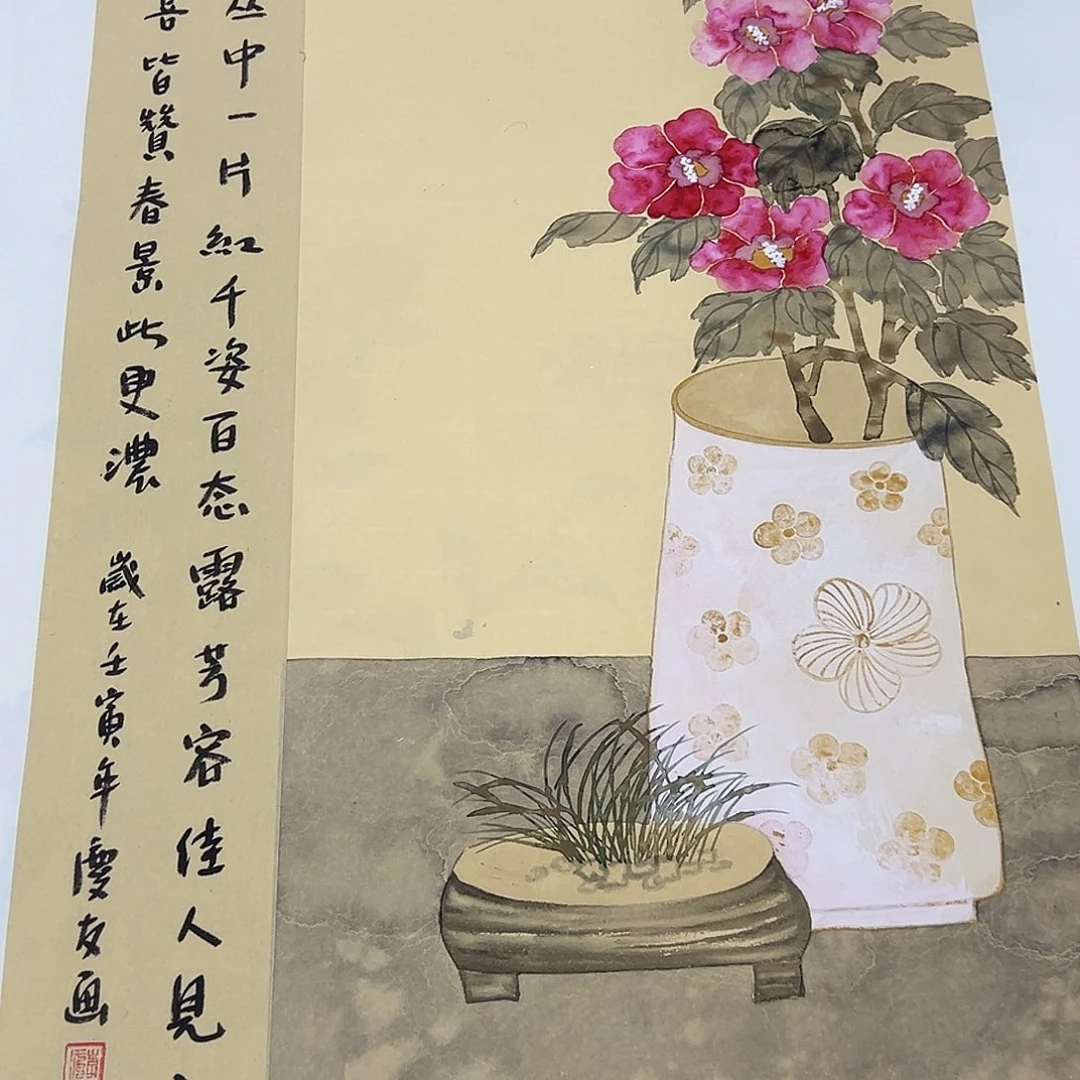 丛中一片红千姿百态露芳容佳人见
喜皆赞春景此更濃 歲在壬寅年慶友画